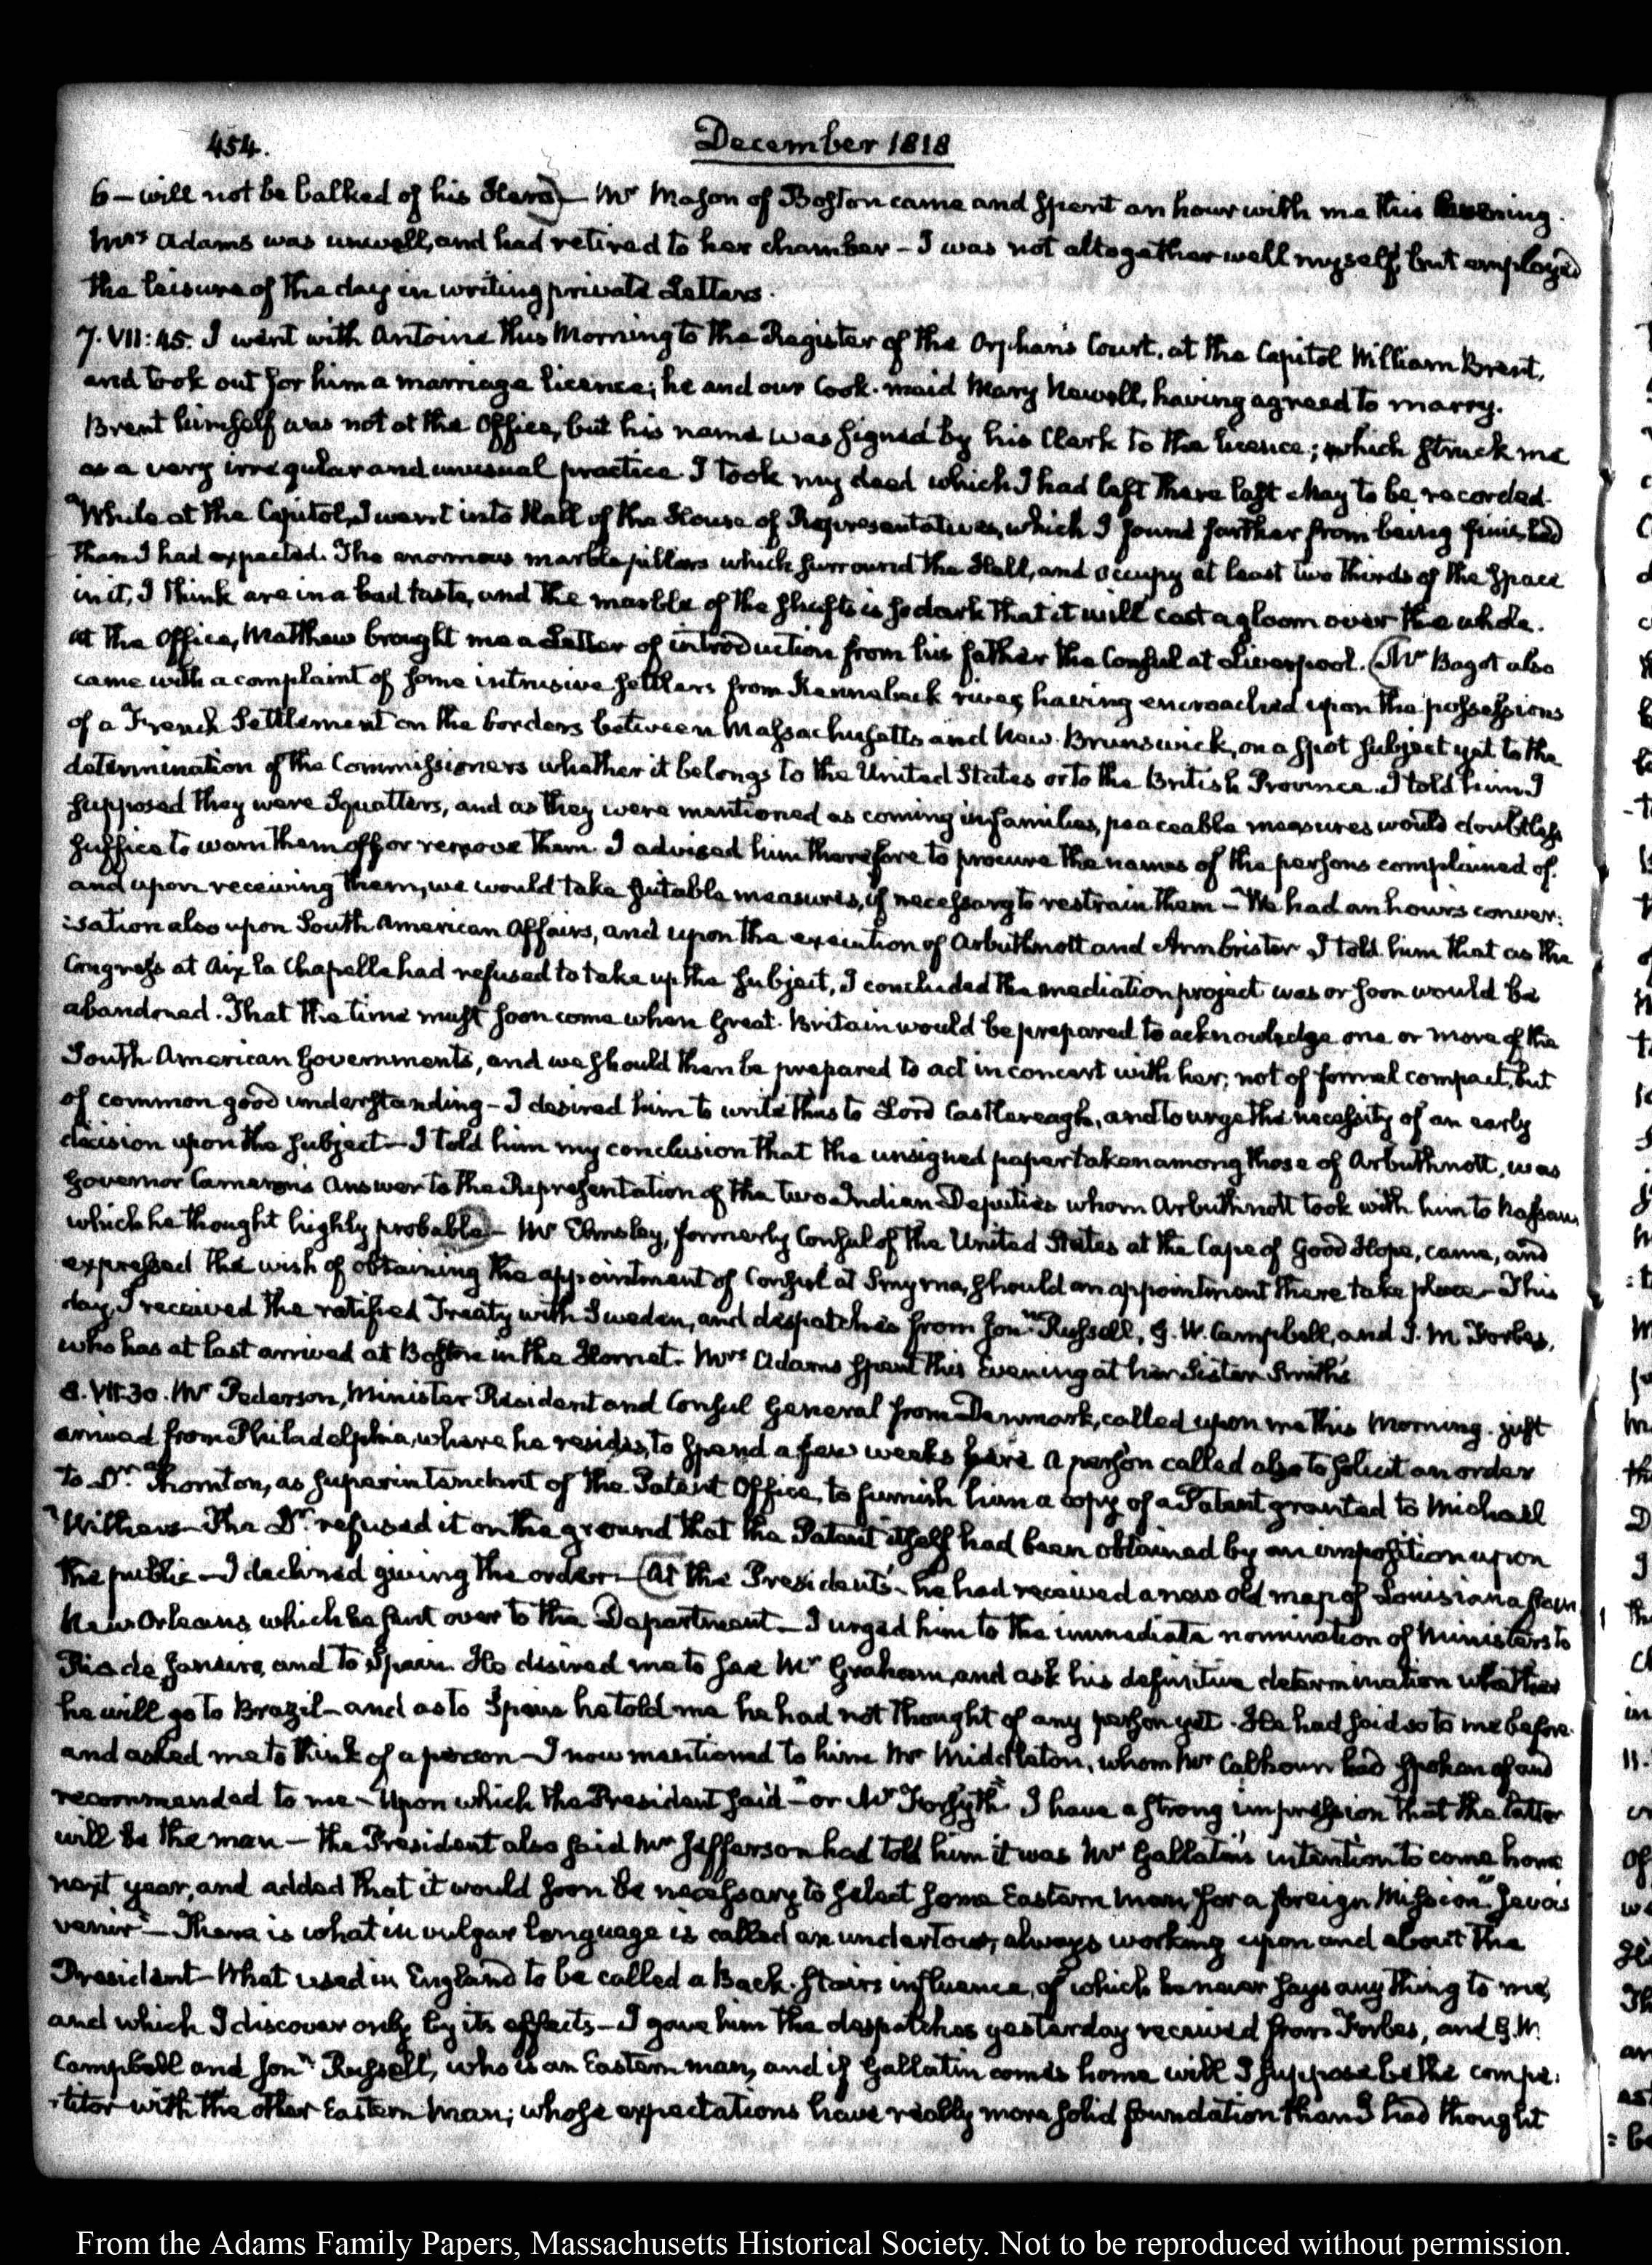 454.
December 1818
6 — will not be balked of his Hero) — Mr Mason of Boston came and spent an hour with me this Evening.
Mrs Adams was unwell, and had retired to her chamber — I was not altogether well myself, but employed
the leisure of the day in writing private Letters.
7. VII:45. I went with Antoine this Morning to the Register of the Orphans Court, at the Capitol William Brent,
and took out for him a marriage licence; he and our Cook-maid Mary Newell, having agreed to marry.
Brent himself was not at the Office, but his name was signed by his Clerk to the licence; which struck me
as a very irregular and unusual practice. I took my deed which I had left there last May to be recorded.
While at the Capitol, I went into Hall of the House of Representatives, which I found farther from being finished
than I had expected. The enormous marble pillars which surround the Hall, and occupy at least two thirds of the space
in it, I think are in a bad taste, and the marble of the shafts is so dark that it will cast a gloom over the whole.
At the Office, Matthew brought me a Letter of introduction from his father the Consul at Liverpool. (Mr Bagot also
came with a complaint of some intrusive settlers from Kennebeck river, having encroached upon the possessions
of a French Settlement on the borders between Massachusetts and New-Brunswick, on a spot subject yet to the
determination of the Commissioners whether it belongs to the United States or to the British Province. I told him I
supposed they were Squatters, and as they were mentioned as coming in families, peaceable measures would doubtless
suffice to warn them off or remove them. I advised him therefore to procure the names of the persons complained of.
and upon receiving them, we would take suitable measures, if necessary to restrain them — We had an hour's conver:
:sation also upon South American Affairs, and upon the execution of Arbuthnott and Armbrister. I told him that as the
Congress at Aix la Chapelle had refused to take up the subject, I concluded the mediation project was or soon would be
abandoned. That the time must soon come when Great-Britain would be prepared to acknowledge one or more of the
South-American Governments, and we should then be prepared to act in concert with her; not of formal compact, but
of common good understanding — I desired him to write thus to Lord Castlereagh, and to urge the necessity of an early
decision upon the subject — I told him my conclusion that the unsigned paper taken among those of Arbuthnott, was
Governor Cameron's Answer to the Representation of the two Indian Deputies whom Arbuthnott took with him to Nassau,
which he thought highly probable) — Mr Elmsley, formerly Consul of the United States at the Cape of Good Hope, came, and
expressed the wish of obtaining the appointment of Consul at Smyrna, should an appointment there take place — This
day, I received the ratified Treaty with Sweden, and despatches from Jonn Russell, G. W. Campbell, and J. M. Forbes,
who has at last arrived at Boston in the Hornet. Mrs Adams spent this Evening at her Sister Smith's
8. VII:30. Mr Pederson, Minister Resident and Consul General from Denmark, called upon me this Morning. just
arrived from Philadelphia, where he resides, to spend a few weeks here. A person called also to solicit an order
to Dr. Thornton, as superintendent of the Patent Office, to furnish him a copy of a Patent granted to Michael
Withers — The Dr. refused it on the ground that the Patent itself had been obtained by an imposition upon
the public — I declined giving the order — (At the President's — he had received a new old map of Louisiana from
New Orleans which he sent over to the Department — I urged him to the immediate nomination of Ministers to
Rio de Janeiro, and to Spain. He desired me to see Mr Graham, and ask his definitive determination whether
he will go to Brazil — and as to Spain he told me he had not thought of any person yet. He had said so to me before.
and asked me to think of a person — I now mentioned to him Mr Middleton, whom Mr Calhoun had spoken of and
recommended to me — Upon which the President said — "or Mr Forsyth." I have a strong impression that the latter
will be the man — The President also said Mr Jefferson had told him it was Mr Gallatin's intention to come home
next year, and added that it would soon be necessary to select some "Eastern Man" for a foreign Mission. "Je vois
venir" — There is what in vulgar language is called an undertow, always working upon and about the
President — What used in England to be called a Back-stairs influence, of which he never says any thing to me,
and which I discover only by its effects — I gave him the despatches yesterday received from Forbes, and G. W.
Campbell and Jonn Russell, who is an Eastern man, and if Gallatin comes home will I suppose be the compe:
:titor with the other Eastern Man; whose expectations have really more solid foundation than I had thought
From the Adams Family Papers, Massachusetts Historical Society. Not to be reproduced without permission.